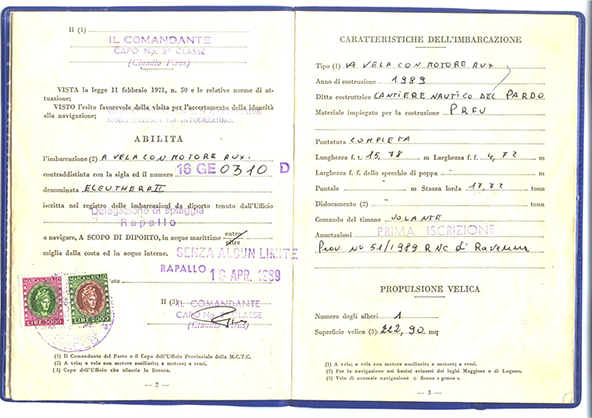 Il (1)
IL COMANDANTE
CAPO Np. 2ª CLASSE
(Claudio Piras)
VISTA la legge 11 febbraio 1971, n. 50 e le relative norme di attuazione;
VISTO l'esito favorevole della visita per l'accertamento della idoneità
alla navigazione;
ABILITA
l'imbarcazione (2) A VELA CON MOTORE AUX.
contraddistinta con la sigla ed il numero 16 GE 0310 D
denominata ELEUTHERA II
iscritta nel registro delle imbarcazioni da diporto tenuto dall'Ufficio
Delegazione di spiaggia
Rapallo
a navigare, A SCOPO DI DIPORTO, in acque marittime entro
oltre
SENZA ALCUN LIMITE
miglia dalla costa ed in acque interne.
RAPALLO 18 APR. 1989
Il (3)
IL COMANDANTE
CAPO Np. 2ª CLASSE
(Claudio Piras)
MARCA DA BOLLO
LIRE 5000
MARCA DA BOLLO
LIRE
(1) Il Comandante del Porto o il Capo dell'Ufficio Provinciale della M.C.T.C.
(2) A vela; a vela con motore ausiliario; a motore; a remi.
(3) Capo dell'Ufficio che rilascia la licenza.
— 2 —
CARATTERISTICHE DELL'IMBARCAZIONE
Tipo (1) A VELA CON MOTORE AUX
Anno di costruzione 1989
Ditta costruttrice CANTIERE NAUTICO DEL PARDO
Materiale impiegato per la costruzione PRFV
Pontatura COMPLETA
Lunghezza f. t. 15,78 m Larghezza f. f. 4,72 m
Larghezza f. f. dello specchio di poppa m
Puntale m Stazza lorda 17,72 tonn
Dislocamento (2) tonn
Comando del timone VOLANTE
Annotazioni PRIMA ISCRIZIONE
Prov. No 51/1989 RNC di Ravenna
PROPULSIONE VELICA
Numero degli alberi 1
Superficie velica (3): 222,90 mq
(1) A vela; a vela con motore ausiliario; a motore; a remi.
(2) Per la navigazione nei bacini svizzeri dei laghi Maggiore e di Lugano.
(3) Vela di normale navigazione + fiocco
— 3 —